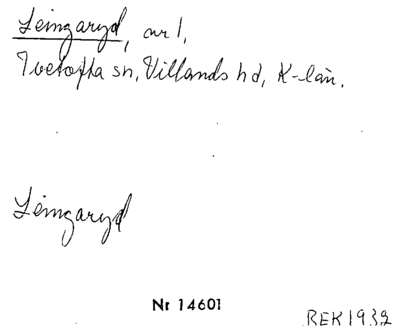 Leingaryd, avr 1,
Ivetofta sn, Villands hd, K-län.
Leingaryd
Nr 14601
REK1932